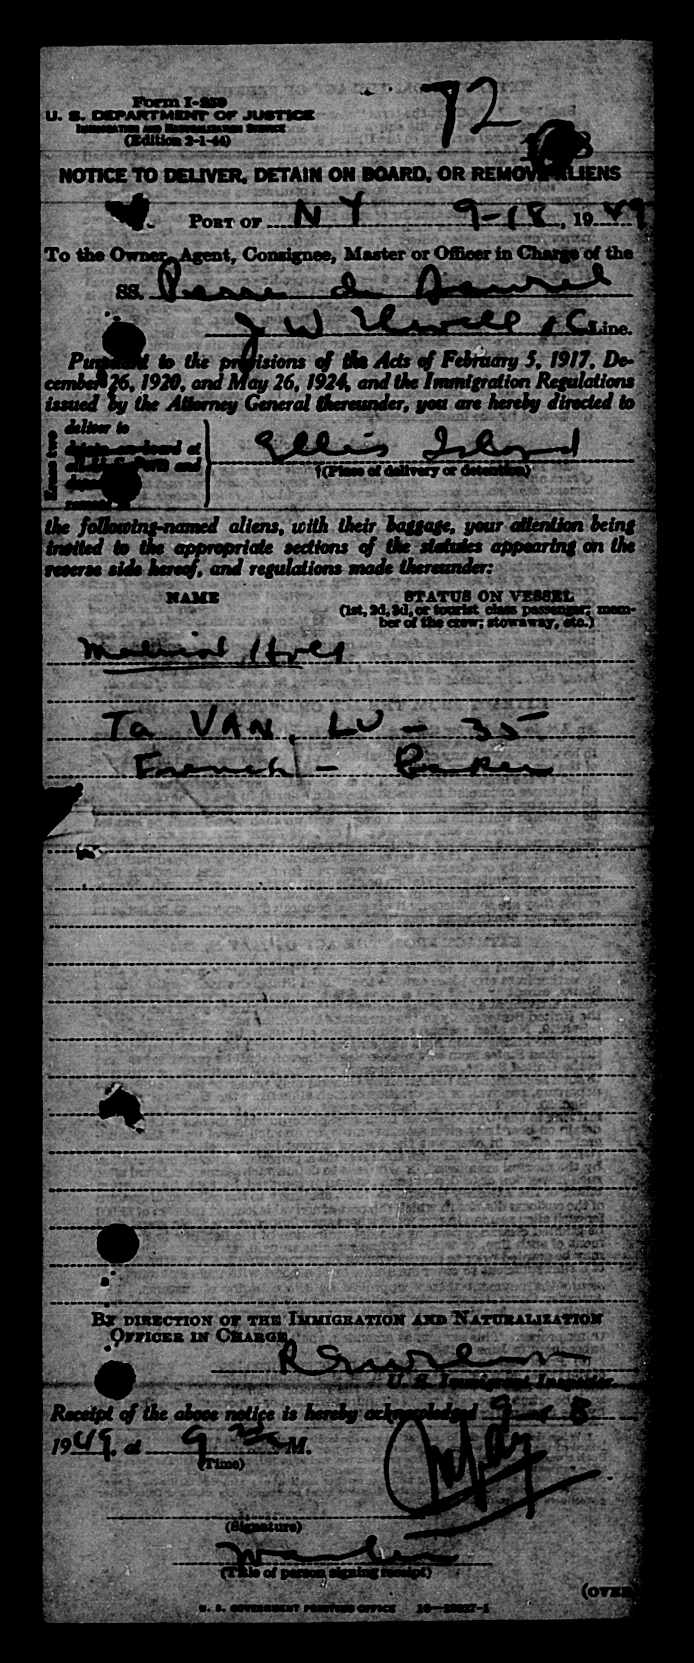 72
Form I-259
U. S. DEPARTMENT OF JUSTICE
IMMIGRATION AND NATURALIZATION SERVICE
(Edition 2-1-44)
NOTICE TO DELIVER, DETAIN ON BOARD, OR REMOVE ALIENS
PORT OF N Y 9-18, 1949
To the Owner, Agent, Consignee, Master or Officer in Charge of the
SS.
J W & Co Line.
Pursuant to the provisions of the Acts of February 5, 1917, De-
cember 26, 1920, and May 26, 1924, and the Immigration Regulations
issued by the Attorney General thereunder, you are hereby directed to
deliver to
Ellis Island
(Place of delivery or detention)
the following-named aliens, with their baggage, your attention being
invited to the appropriate sections of the statutes appearing on the
reverse side hereof, and regulations made thereunder:
NAME STATUS ON VESSEL
(1st, 2d, 3d, or tourist class passenger; mem-
ber of the crew; stowaway, etc.)
Ta VAN. LU - 35
French -
BY DIRECTION OF THE IMMIGRATION AND NATURALIZATION
OFFICER IN CHARGE.
U. S. Immigrant Inspector.
Receipt of the above notice is hereby acknowledged
1949, at 9 M.
(Time)
(Signature)
(Title of person signing receipt)
(OVER
U. S. GOVERNMENT PRINTING OFFICE